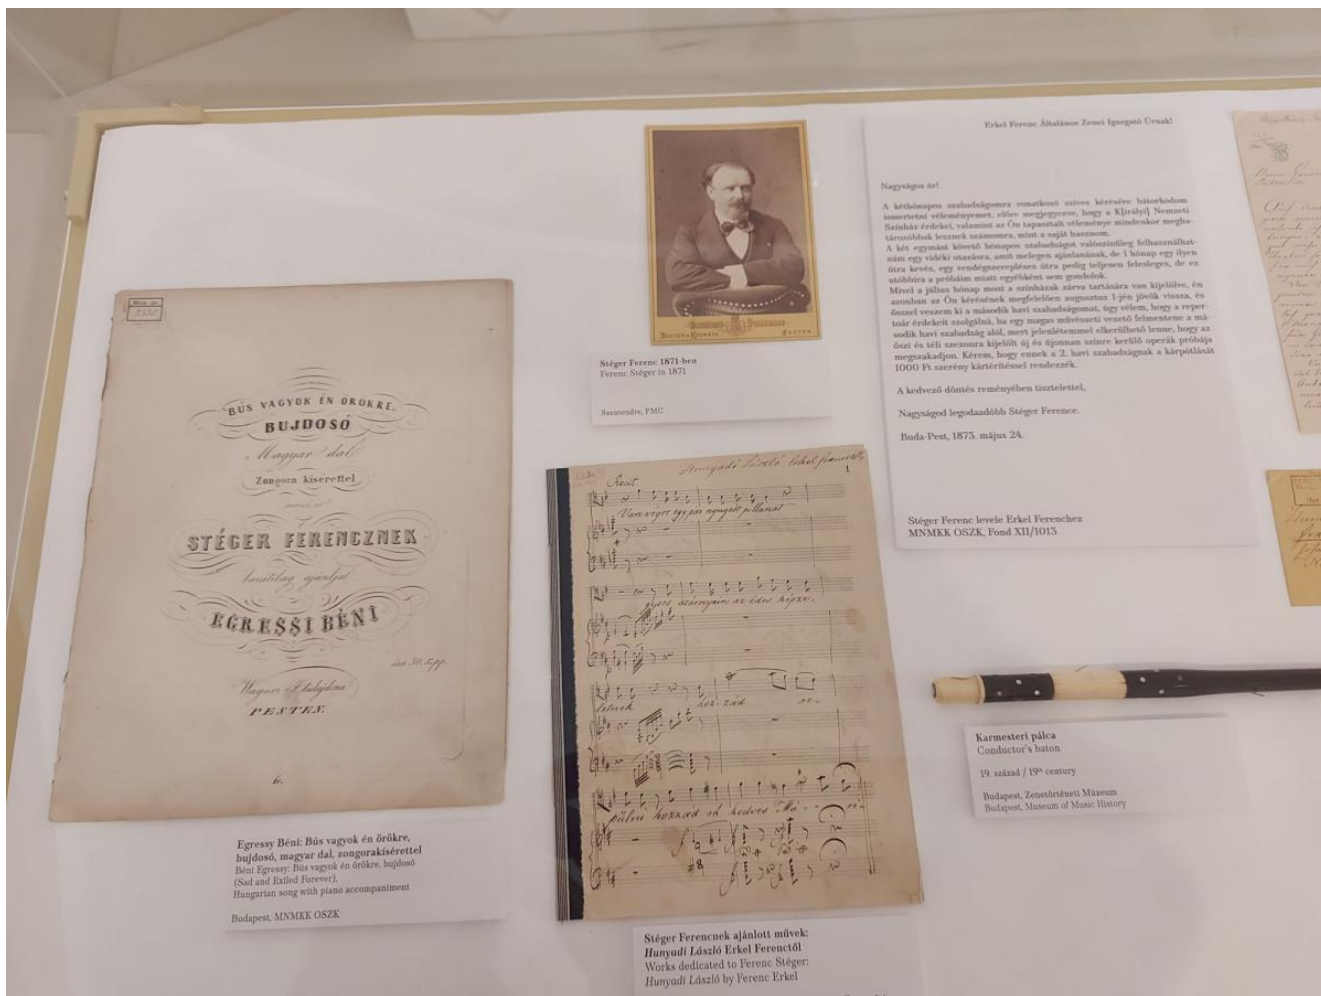 BÚS VAGYOK ÉN ÖRÖKRE,
BUJDOSÓ
Magyar dal
Zongora kisérettel
STÉGER FERENCZNEK
barátilag ajánlja
EGRESSI BÉNI
ára 30. x.pp.
PESTEN.
6.
Egressy Béni: Bús vagyok én örökre,
bujdosó, magyar dal, zongorakísérettel
Béni Egressy: Bús vagyok én örökre, bujdosó
(Sad and Exiled Forever),
Hungarian song with piano accompaniment
Budapest, MNMKK OSZK
Stéger Ferenc 1871-ben
Ferenc Stéger in 1871
Szentendre, FMC
Hunyadi László Erkel
1
Van végre egy pár nyugodt pillanat
gyors szárnyain az édes képze-
letnek hoz-zád re-
pülni hozzád oh kedves Má - ri-
Stéger Ferencnek ajánlott művek:
Hunyadi László Erkel Ferenctől
Works dedicated to Ferenc Stéger:
Hunyadi László by Ferenc Erkel
Erkel Ferenc Általános Zenei Igazgató Úrnak!
Nagyságos úr!
A kéthónapos szabadságomra vonatkozó szíves kérésére bátorkodom
ismertetni véleményemet, előre megjegyezve, hogy a K[irályi] Nemzeti
Színház érdekei, valamint az Ön tapasztalt véleménye mindenkor megha-
tározóbbak lesznek számomra, mint a saját hasznom.
A két egymást követő hónapos szabadságot valószínűleg felhasználhat-
nám egy vidéki utazásra, amit melegen ajánlanának, de 1 hónap egy ilyen
útra kevés, egy vendégszerepléses útra pedig teljesen felesleges, de ez
utóbbira a próbáim miatt egyébként sem gondolok.
Mivel a július hónap most a színházak zárva tartására van kijelölve, én
azonban az Ön kérésének megfelelően augusztus 1-jén jövök vissza, és
ősszel veszem ki a második havi szabadságomat, úgy vélem, hogy a reper-
toár érdekeit szolgálná, ha egy magas művészeti vezető felmentene a má-
sodik havi szabadság alól, mert jelenlétemmel elkerülhető lenne, hogy az
őszi és téli szezonra kijelölt új és újonnan színre kerülő operák próbája
megszakadjon. Kérem, hogy ennek a 2. havi szabadságnak a kárpótlását
1000 Ft szerény kártérítéssel rendezzék.
A kedvező döntés reményében tisztelettel,
Nagyságod legodaadóbb Stéger Ference.
Buda-Pest, 1873. május 24.
Stéger Ferenc levele Erkel Ferenchez
MNMKK OSZK, Fond XII/1013
Karmesteri pálca
Conductor's baton
19. század / 19th century
Budapest, Zenetörténeti Múzeum
Budapest, Museum of Music History